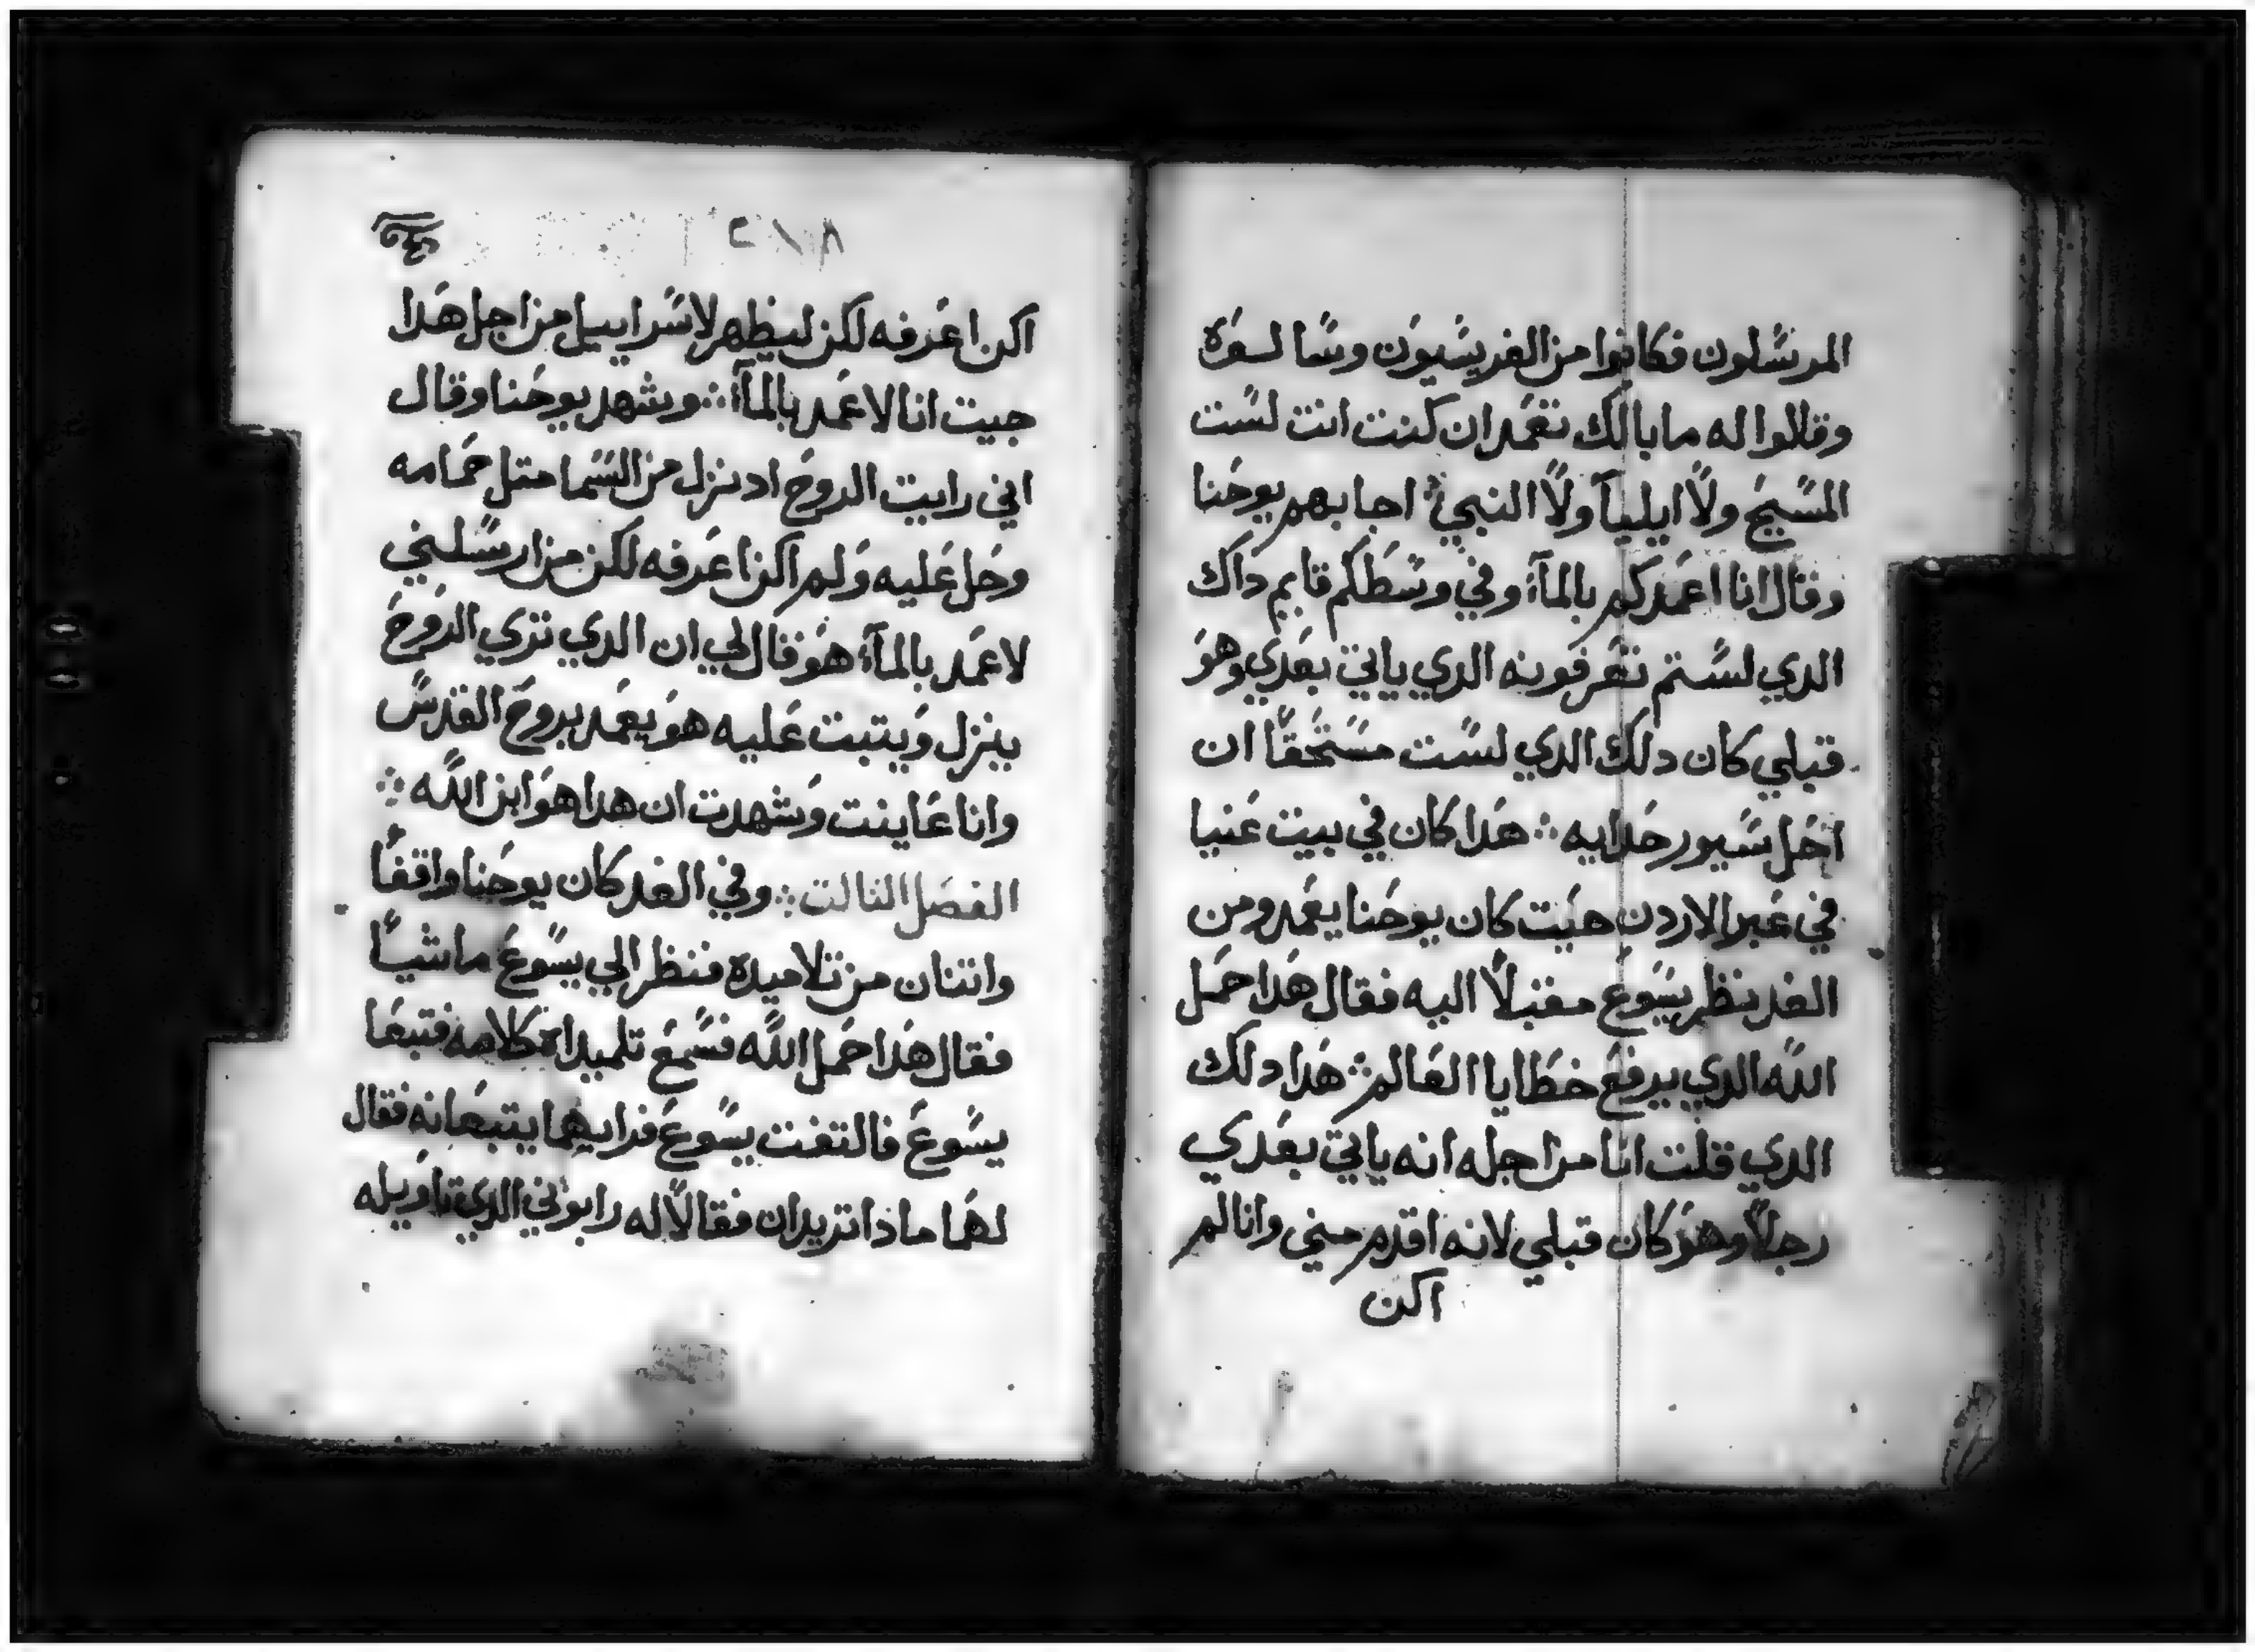 المرسلون فكانوا من الفريسيون وسالوه
وقالوا له ما بالك تعمد ان كنت انت لست
المسيح ولا ايليآ ولا النبي ۞ اجابهم يوحنا
وقال انا اعمدكم بالمآء وفي وسطكم قايم داك
الدي لستم تعرفونه الدي ياتي بعدي وهو
قبلي كان دلك الدي لست مستحقًا ان
احل سيور حدايه ۞ هدا كان في بيت عنيا
في عبر الاردن حيت كان يوحنا يعمد ومن
الغد نظر يسوع مقبلاً اليه فقال هدا حمل
الله الدي يرفع خطايا العالم ۞ هدا دلك
الدي قلت انا من اجله انه ياتي بعدي
رجلاً وهو كان قبلي لانه اقدم مني وانا لم
اكن
اكن اعرفه لكن ليظهر لاسراييل من اجل هدا
جيت انا لاعمد بالمآء ۞ وشهد يوحنا وقال
اني رايت الروح اد نزل من السما متل حمامه
وحل عليه ولم اكن اعرفه لكن من ارسلني
لاعمد بالمآء هو قال لي ان الدي تري الروح
ينزل ويتبت عليه هو يعمد بروح القدس
وانا عاينت وشهدت ان هدا هو ابن الله ۞
الفصل التالت ۞ وفي الغد كان يوحنا واقفًا
واتنان من تلاميده فنظر الي يسوع ماشيًا
فقال هدا حمل الله فسمع تلميداه كلامه فتبعا
يسوع فالتفت يسوع فرايهما يتبعانه فقال
لهما ماذا تريدان فقالا له رابوني الدي تاويله